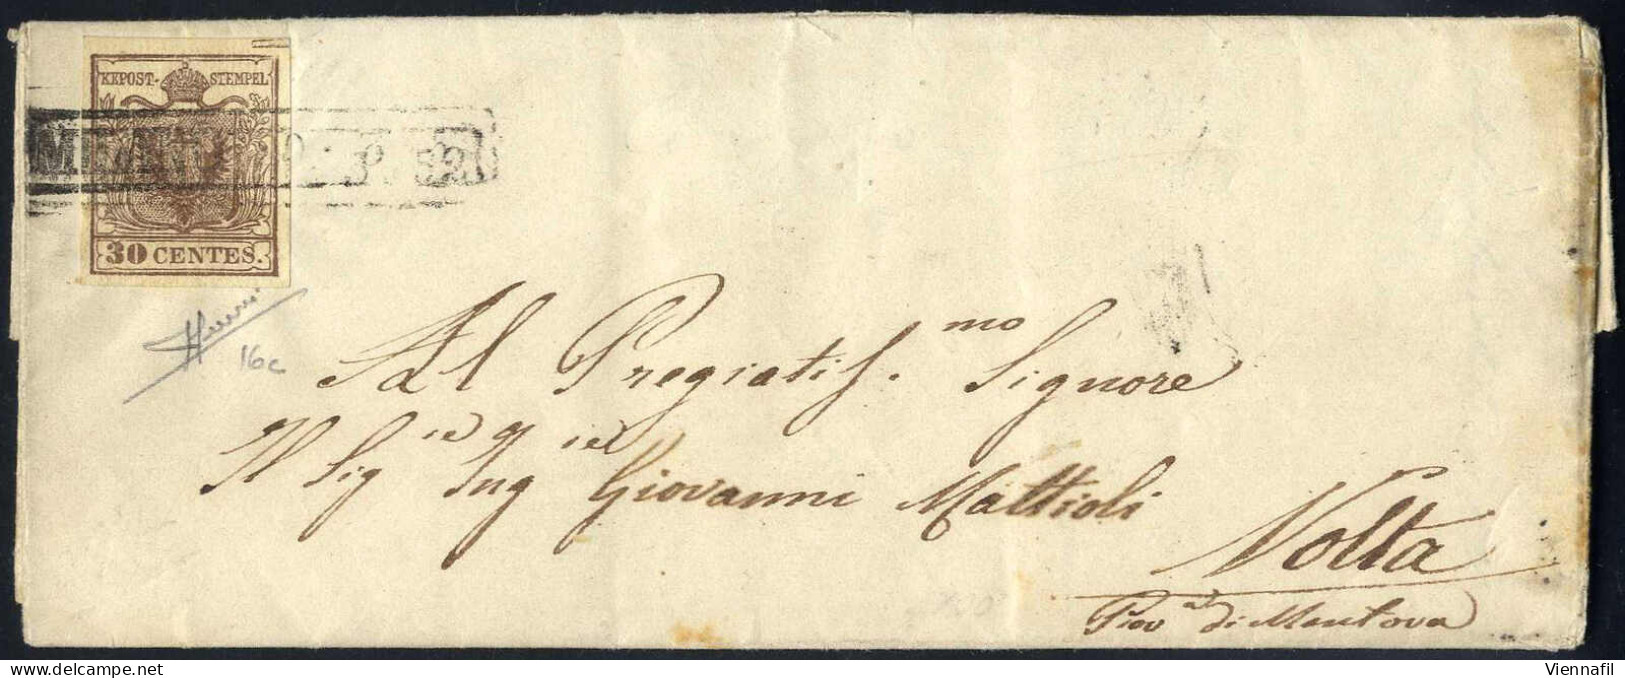 KKPOST- STEMPEL
MILANO
30 CENTES.
16c
Al Pregiatiss.mo Signore
Il Sig.re Ing.re Giovanni Mattioli
Volta
Prov.a di Mantova
Viennafil